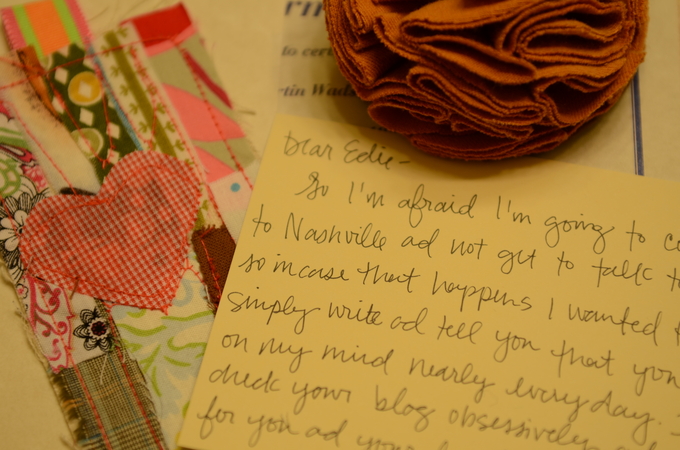 to cer
tin Wad
Dear Edie-
So I'm afraid I'm going to co
to Nashville ad not get to talk t
so incase that happens I wanted t
Simply write ad tell you that you
on my mind nearly everyday.
check your blog obsessively
for you ad your